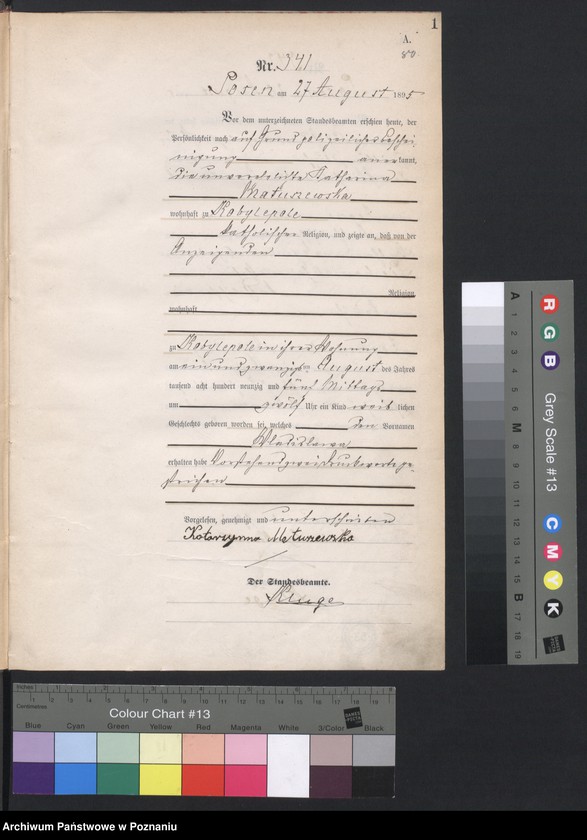 1
A.
80
Nr. 341
Posen am 27 August 1895
Vor dem unterzeichneten Standesbeamten erschien heute, der
Persönlichkeit nach auf Grund polizeilicher Beschei-
nigung anerkannt,
die unverehelichte Katharina
Matuszewska
wohnhaft zu Kobylepole
katholischer Religion, und zeigte an, daß von der
Anzeigenden
Religion
wohnhaft
zu Kobylepole in ihrer Wohnung
am einundzwanzigsten August des Jahres
tausend acht hundert neunzig und fünf Mittags
um zwölf Uhr ein Kind weiblichen
Geschlechts geboren worden sei, welches den Vornamen
Wladislawa
erhalten habe Vorstehend zwei Druckworte ge-
strichen
Vorgelesen, genehmigt und unterschrieben
Katarzynna Matuszewska
Der Standesbeamte.
Inches 1 2 3 4 5 6 7 8
Centimetres 1 2 3 4 5 6 7 8 9 10 11 12 13 14 15 16 17 18 19
Colour Chart #13
Blue Cyan Green Yellow Red Magenta White 3/Color Black
A 1 2 3 4 5 6 M 8 9 10 11 12 13 14 15 B 17 18 19
R G B Grey Scale #13 C M Y K
Archiwum Państwowe w Poznaniu